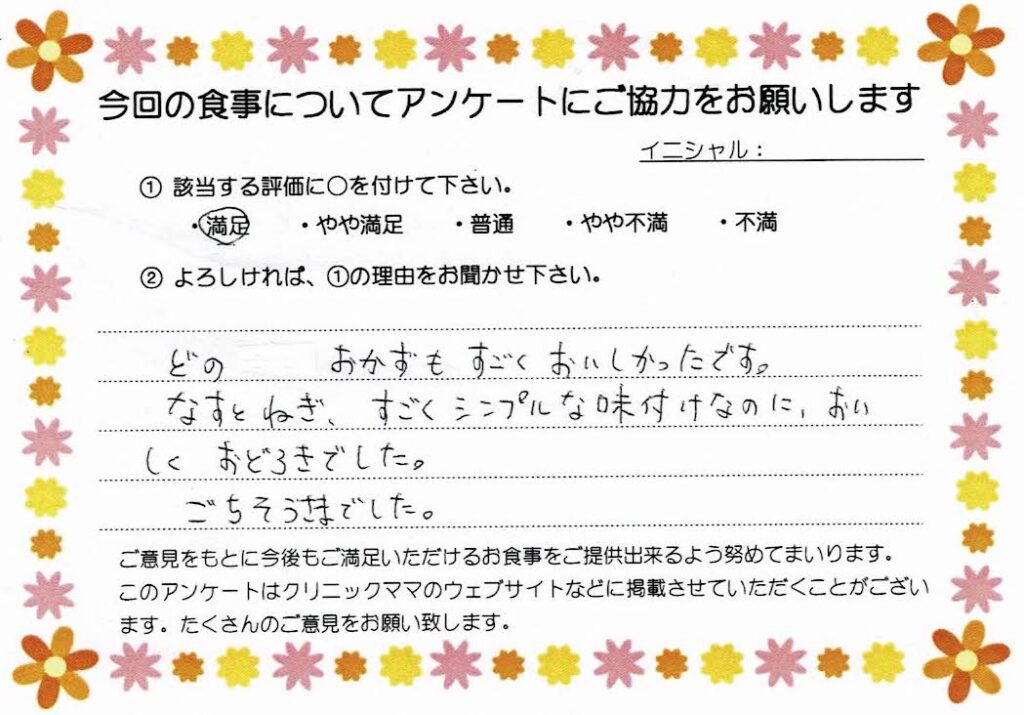 今回の食事についてアンケートにご協力をお願いします
イニシャル：
① 該当する評価に〇を付けて下さい。
・満足 ・やや満足 ・普通 ・やや不満 ・不満
② よろしければ、①の理由をお聞かせ下さい。
どの おかずも すごく おいしかったです。
なすとねぎ、すごくシンプルな味付けなのに、おい
しく おどろきでした。
ごちそうさまでした。
ご意見をもとに今後もご満足いただけるお食事をご提供出来るよう努めてまいります。
このアンケートはクリニックママのウェブサイトなどに掲載させていただくことがござい
ます。たくさんのご意見をお願い致します。